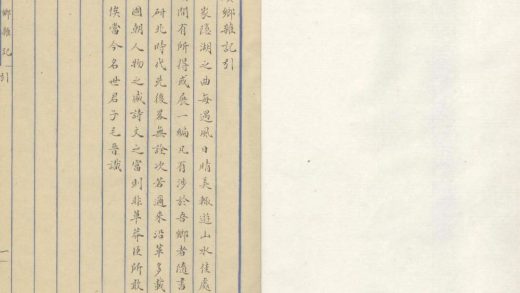 鄉雜記引
家隱湖之曲每遇風日晴美輒遊山水佳處
間有所得或展一編凡有涉於吾鄉者隨書
研北時代先後畧無詮次若邇來沿革多載
國朝人物之盛詩文之富則非草莽臣所敢
俟當今名世君子毛晉識
鄉雜記
引
一